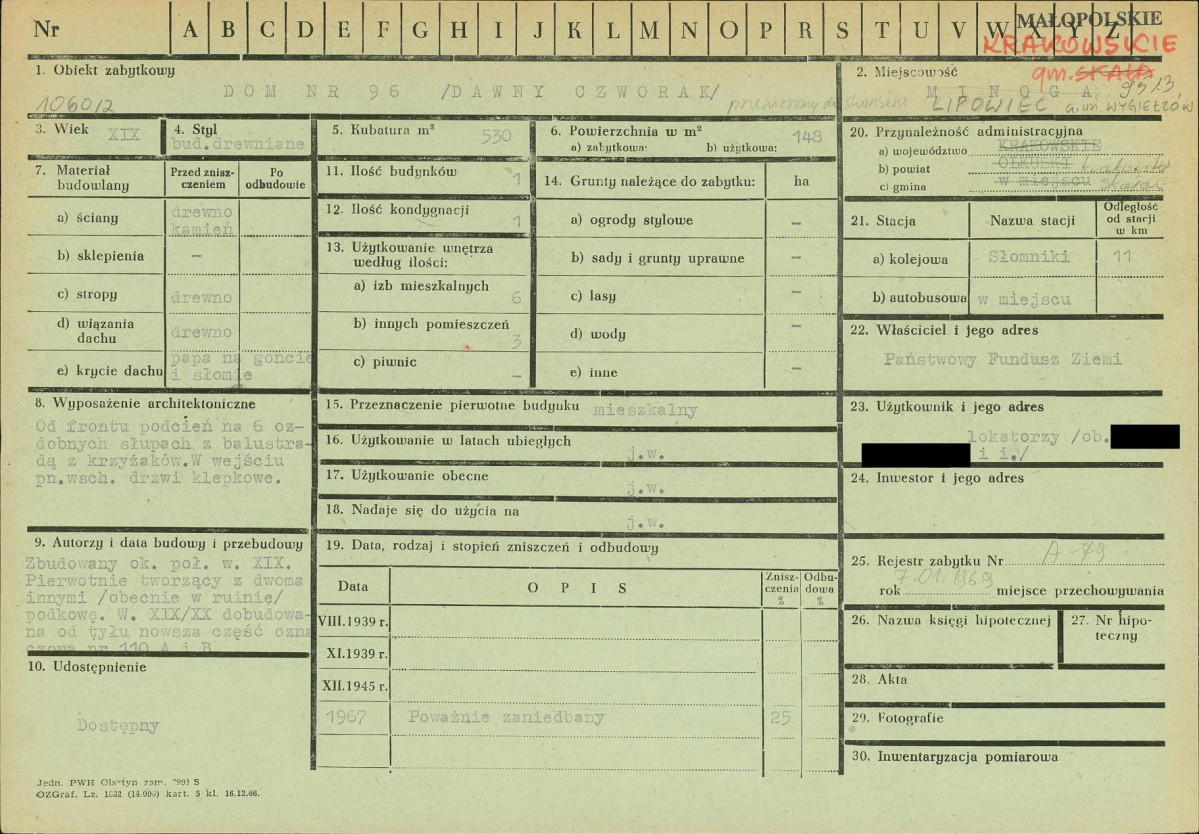 Nr A B C D E F G H I J K L M N O P R S T U V W X Y Z
MAŁOPOLSKIE
KRAKOWSKIE
gm. SKAŁA
1. Obiekt zabytkowy
DOM NR 96 /DAWNY CZWORAK/
1060/2
2. Miejscowość
9513
MINOGA
LIPOWIEC WYGIEŁZÓW
3. Wiek XIX
4. Styl
bud.drewniane
5. Kubatura m³ 530
6. Powierzchnia w m² 148
a) zabytkowa: b) użytkowa:
7. Materiał budowlany
Przed zniszczeniem
Po odbudowie
a) ściany drewno
kamień
b) sklepienia –
c) stropy drewno
d) wiązania dachu drewno
e) krycie dachu papa na goncie
i słomie
8. Wyposażenie architektoniczne
Od frontu podcień na 6 oz-
dobnych słupach z balustra-
dą z krzyżaków.W wejściu
pn.wsch. drzwi klepkowe.
9. Autorzy i data budowy i przebudowy
Zbudowany ok. poł. w. XIX.
Pierwotnie tworzący z dwoma
innymi /obecnie w ruinie/
podkowę. W. XIX/XX dobudowa-
na od tyłu nowsza część ozna
czona nr 110 A i B
10. Udostępnienie
Dostępny
11. Ilość budynków 1
12. Ilość kondygnacji 1
13. Użytkowanie wnętrza
według ilości:
a) izb mieszkalnych 6
b) innych pomieszczeń 3
c) piwnic –
14. Grunty należące do zabytku: ha
a) ogrody stylowe –
b) sady i grunty uprawne –
c) lasy –
d) wody –
e) inne –
15. Przeznaczenie pierwotne budynku mieszkalny
16. Użytkowanie w latach ubiegłych
j.w.
17. Użytkowanie obecne
j.w.
18. Nadaje się do użycia na
j.w.
19. Data, rodzaj i stopień zniszczeń i odbudowy
Data OPIS Zniszczenia % Odbudowa %
VIII.1939 r.
XI.1939 r.
XII.1945 r.
1967 Poważnie zaniedbany 25
20. Przynależność administracyjna
a) województwo KRAKOWSKIE
b) powiat OLKUSKI krakowski
c) gmina w miejscu Skała
21. Stacja Nazwa stacji Odległość od stacji w km
a) kolejowa Słomniki 11
b) autobusowa w miejscu
22. Właściciel i jego adres
Państwowy Fundusz Ziemi
23. Użytkownik i jego adres
lokatorzy /ob.
i i./
24. Inwestor i jego adres
25. Rejestr zabytku Nr A-79
7.01.1969
rok miejsce przechowywania
26. Nazwa księgi hipotecznej
27. Nr hipoteczny
28. Akta
29. Fotografie
30. Inwentaryzacja pomiarowa
Jedn. PWH Olsztyn zam. 7993 S
OZGraf. Lz. 1632 (14.000) kart. 5 kl. 16.12.66.